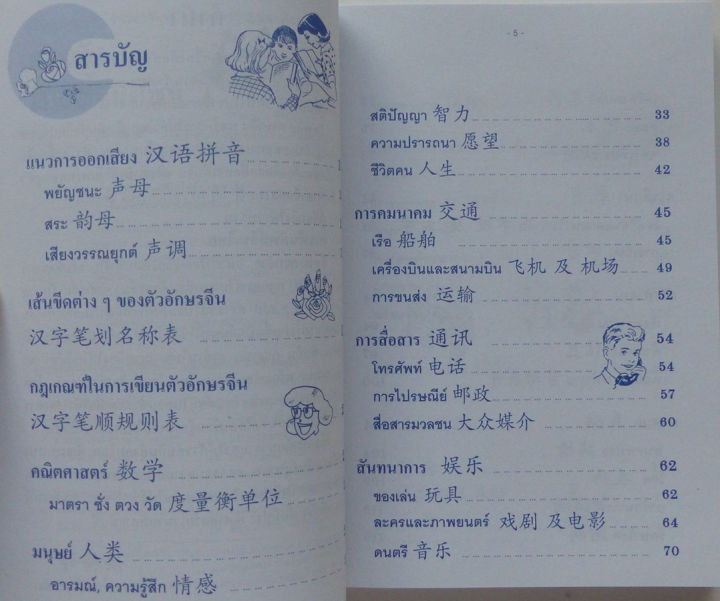 สารบัญ
แนวการออกเสียง 汉语拼音
พยัญชนะ 声母
สระ 韵母
เสียงวรรณยุกต์ 声调
เส้นขีดต่าง ๆ ของตัวอักษรจีน
汉字笔划名称表
กฎเกณฑ์ในการเขียนตัวอักษรจีน
汉字笔顺规则表
คณิตศาสตร์ 数学
มาตรา ชั่ง ตวง วัด 度量衡单位
มนุษย์ 人类
อารมณ์, ความรู้สึก 情感
- 5 -
สติปัญญา 智力 33
ความปรารถนา 愿望 38
ชีวิตคน 人生 42
การคมนาคม 交通 45
เรือ 船舶 45
เครื่องบินและสนามบิน 飞机 及 机场 49
การขนส่ง 运输 52
การสื่อสาร 通讯 54
โทรศัพท์ 电话 54
การไปรษณีย์ 邮政 57
สื่อสารมวลชน 大众媒介 60
สันทนาการ 娱乐 62
ของเล่น 玩具 62
ละครและภาพยนตร์ 戏剧 及电影 64
ดนตรี 音乐 70